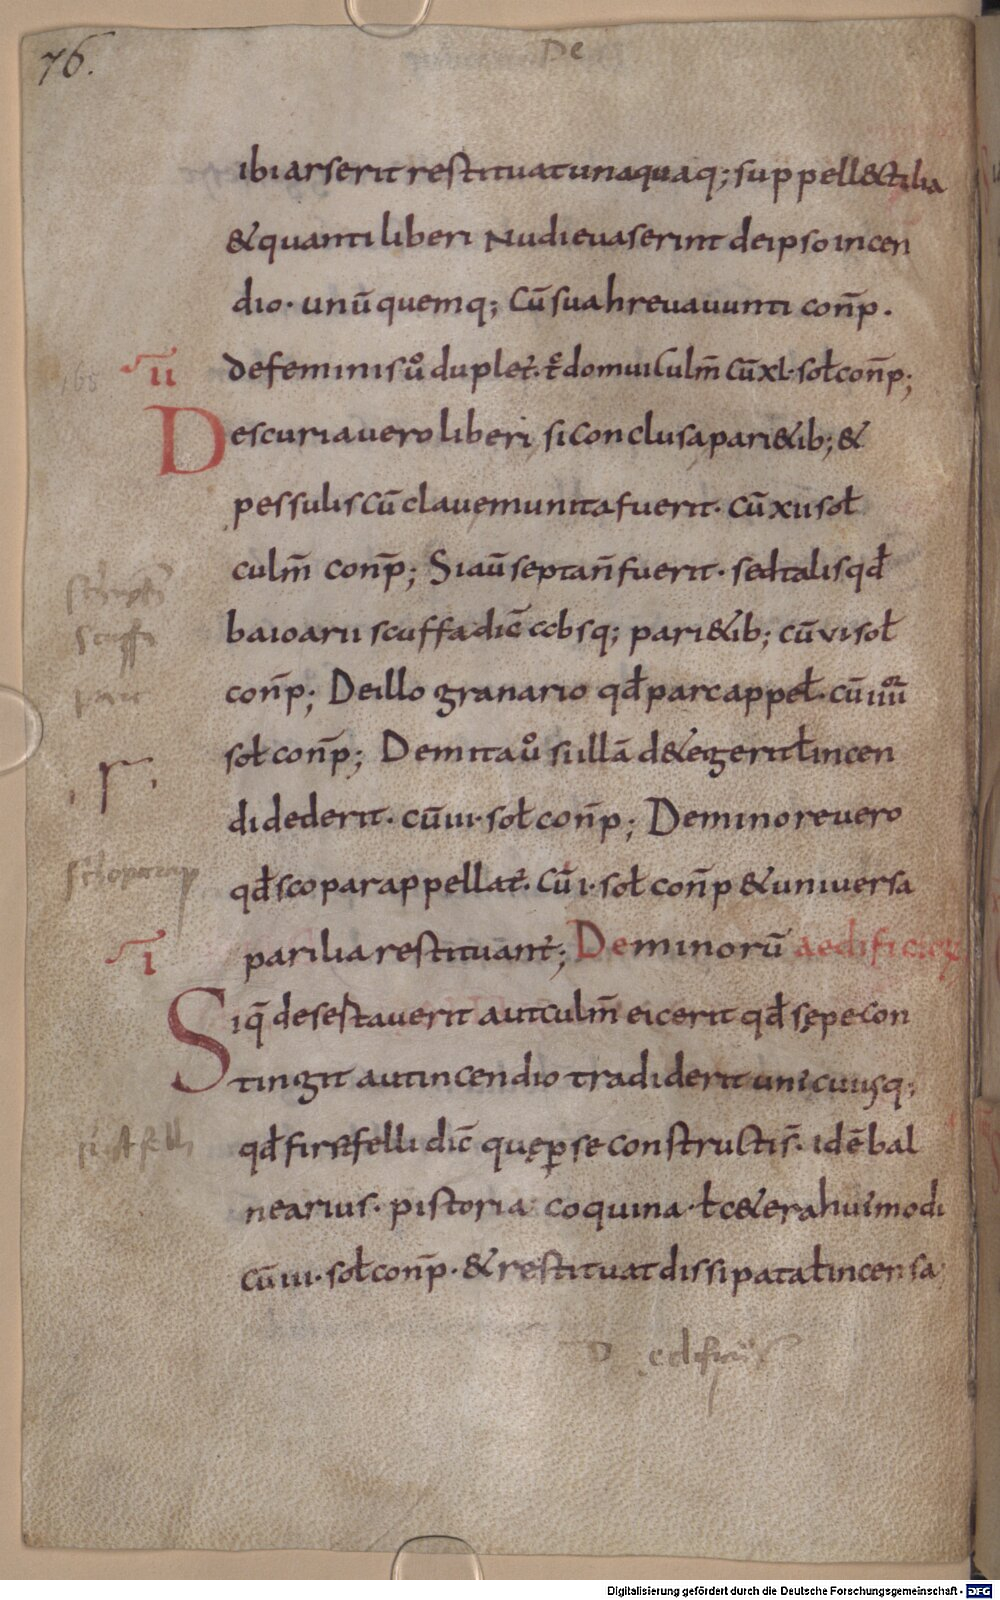 76.
De
ibi arserit restituat unaquaq; suppell&ctilia
& quanti liberi Nudi evaserint de ipso incen
dio · unū quemq; Cū sua hrevavunti con̄p .
de feminis ů duplet. t̊ domui culm̄ cū xl · soł con̄p;
II
De scuria vero liberi si conclusa pari&ib; &
pessulis cū clave munita fuerit · cū xii soł
culm̄ con̄p; Si aū septan̄ fuerit · sed talis qđ
baioarii scuffa dic̄ ccbsq; pari&ib; cū vi soł
con̄p; De illo granario qđ parc appeł · cū iiii
soł con̄p; De mita ů si illā d&egerit ł incen
di dederit · cū iii · soł con̄p; De minore vero
qđ scopar appellat̄. Cū i · soł con̄p & universa
parilia restituant̄; De minorū aedificior
I
Siq̄ desestaverit aut culm̄ eicerit qđ sępe con
tingit aut incendio tradiderit unicuiusq;
qđ firstfelli dic̄ quę p̱ se constructis̄ · idē bal
nearius · pistoria coquina · ł c&era huimodi
cū iii · soł con̄p · & restituat dissipata ł incensa
Digitalisierung gefördert durch die Deutsche Forschungsgemeinschaft - DFG